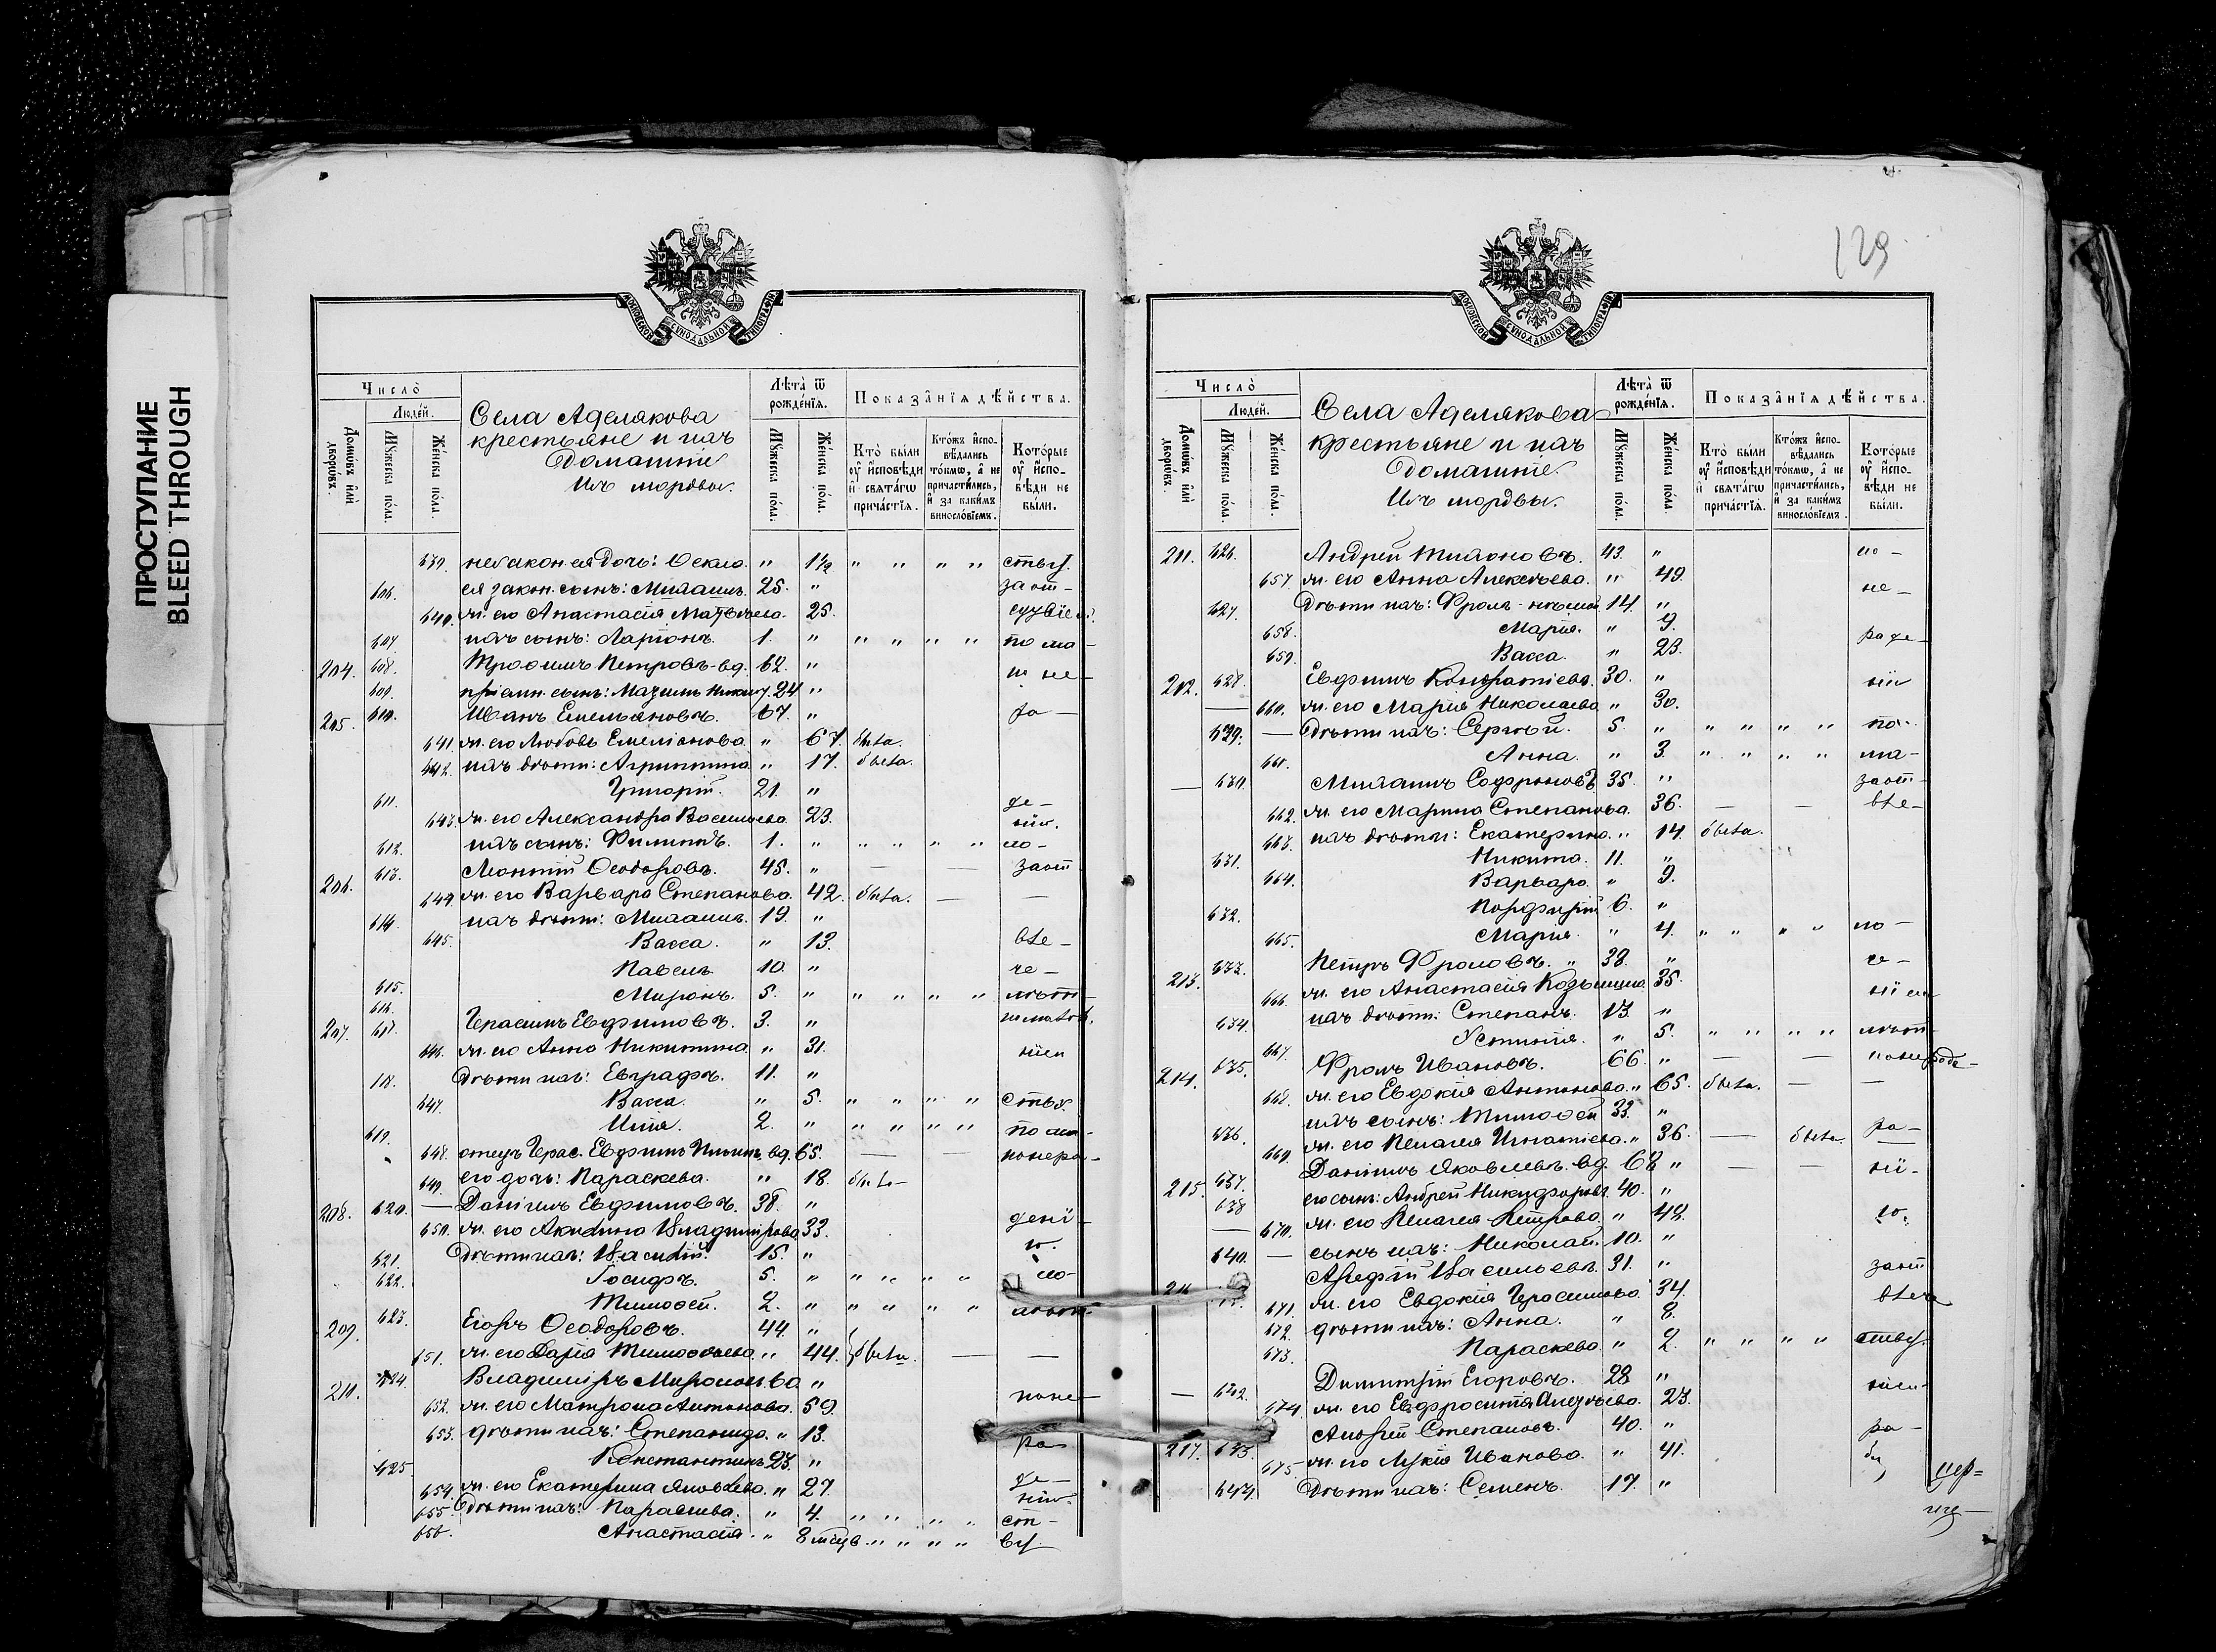 ПРОСТУПАНИЕ
BLEED THROUGH
МОСКОВСКОЙ СУНОДАЛЬНОЙ ТИПОГРАФІИ
Число̀
Домѡ́въ и҆лѝ дворѡ́въ.
Люде́й.
Мꙋ́жеска по́ла.
Же́нска по́ла.
Села Аделякова
крестьяне и ихъ
домашніе
Изъ мордвы.
Лѣта̀ ѿ рожде́нїѧ.
Мꙋ́жеска по́ла.
Же́нска по́ла.
Показа̂нїѧ дѣ́йства.
Кто̀ бы́ли оу҆ и҆́сповѣди и҆ свѧта́гѡ прича́стїѧ.
Кто́жъ и҆спо-вѣ́дались то́кмѡ, а҆ не причасти́лись, и҆ за каки́мъ винослѡ́вїемъ.
Кото́рые оу҆ и҆́спо-вѣди не бы́ли.
639. незакон. ея дочь: Ѳекла. " 1½ " " " " ству.
606. ея закон. сынъ: Михаилъ. 25. " за от-
640. ж. его Анастасія Матвѣева. 25.
607. ихъ сынъ: Ларіонъ. 1. " " " " " по ма-
204. 608. Трофимъ Петровъ-вд. 62. "
609. пріемн. сынъ: Максимъ 24 "
205. 610. Иванъ Емельяновъ. 67. " ра-
641. ж. его Любовь Емеліанова. " 67. бѣла.
642. ихъ дѣти: Агриппина. " 17. бѣла.
611. Григорій. 21. " де-
643. ж. его Александра Васильева. 23. нію.
612. ихъ сынъ: Филиппъ. 1. " " " " " мо-
206. 613. Леонтій Ѳеодоровъ. 45. " — — за от
644. ж. его Варвара Степанова. 42. бѣла. — —
614. ихъ дѣти: Михаилъ. 19. "
645. Васса. " 13.
Павелъ. 10. "
615. Миронъ. 5. " " " " "
616.
207. 617. Герасимъ Евфимовъ. 3. "
646. ж. его Анна Никитина. " 31.
18. Дѣти ихъ: Евграфъ. 11. "
647. Васса. " 5. " " " "
619. Илія. 2. " " " " "
648. отецъ Герас. Евфимъ вд. 65. — — понера-
649. его дочь: Параскева. " 18.
208. 620. — Даніилъ Евфимовъ. 38. "
650. ж. его Акилина Владимірова 33. дені-
621. Дѣти ихъ: Василій. 15. " ю.
622. Іосифъ. 5. " " " " " мо-
Тимоѳей. 2. " " " " "
209. 623. Егоръ Ѳеодоровъ. 44. "
651. ж. его Дарія Тимоѳеева. " 44. бѣла. — —
210. 624. Владиміръ 60 " поне-
652. ж. его Матрона Антонова. 59.
653. дѣти ихъ: Степанида. " 13. ра
625. Константинъ 23. "
654. ж. его Екатерина Яковлева. " 27. де-
655. Дѣти ихъ: Параскева. " 4. " " " "
656. Анастасія. " 8 мѣсяц. " " " "
129
МОСКОВСКОЙ СУНОДАЛЬНОЙ ТИПОГРАФІИ
Число̀
Домѡ́въ и҆лѝ дворѡ́въ.
Люде́й.
Мꙋ́жеска по́ла.
Же́нска по́ла.
Села Аделякова
крестьяне и ихъ
домашніе.
Изъ мордвы.
Лѣта̀ ѿ рожде́нїѧ.
Мꙋ́жеска по́ла.
Же́нска по́ла.
Показа̂нїѧ дѣ́йства.
Кто̀ бы́ли оу҆ и҆́сповѣди и҆ свѧта́гѡ прича́стїѧ.
Кто́жъ и҆спо-вѣ́дались то́кмѡ, а҆ не причасти́лись, и҆ за каки́мъ винослѡ́вїемъ.
Кото́рые оу҆ и҆́спо-вѣди не бы́ли.
211. 626. Андрей 43. " по-
657. ж. его Анна Алексѣева. " 49. не-
627. Дѣти ихъ: Фролъ 14. "
658. Марія. " 9. раде-
659. Васса. " 23.
212. 628. Евфимъ Кондратіевъ. 30. " нію
— 660. ж. его Марія Николаева. " 30.
629. — Дѣти ихъ: Сергѣй. 5. " " " " " по-
661. Анна. " 3. " " " " ма-
— 630. Михаилъ Софроновъ. 35. " за от-
662. ж. его Марина Степанова. 36. — —
663. ихъ дѣти: Екатерина. " 14. бѣла.
631. Никита. 11. "
664. Варвара. " 9.
632. Порфирій 6. "
665. Марія. " 4. " " " " по-
213. 633. Петръ Фроловъ. " 38. "
666. ж. его Анастасія Козьмина. 35.
634. ихъ дѣти: Степанъ. 13. "
667. Устинія. " 5. " " " "
214. 635. Фролъ Ивановъ. 66. " — —
668. ж. его Евдокія Антонова. " 65. бѣла. — —
636. ихъ сынъ: Тимоѳей 33. "
669. ж. его Пелагея Игнатіева. " 36. — бѣла. ра-
215. 637. Даніилъ Яковлевъ. вд. 68 " — — ні-
638 его сынъ: Андрей Никифоровъ. 40. "
— 670. ж. его Пелагея Петрова. " 42. ю.
640. — сынъ ихъ: Николай. 10. "
216 Арефій Васильевъ. 31. " за от
671. ж. его Евдокія Герасимова. 34.
672. дѣти ихъ: Анна. " 8.
673. Параскева. " 2. " " " " ству.
— 642. Димитрій Егоровъ. 28 "
674. ж. его Евфросинія 23.
217. 643. Андрей Степановъ. 40. " ра-
675. ж. его Лукія Иванова. " 41.
644. Дѣти ихъ: Семенъ. 17. "